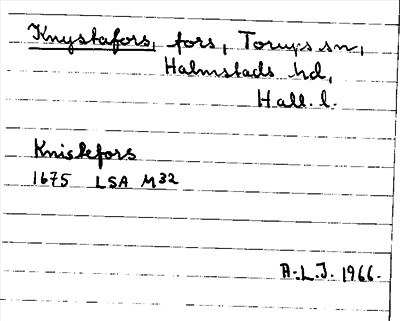 Knystafors, fors, Torups sn,
Halmstads hd,
Hall. l.
Knislefors
1675 LSA M32
A.L.J. 1966.